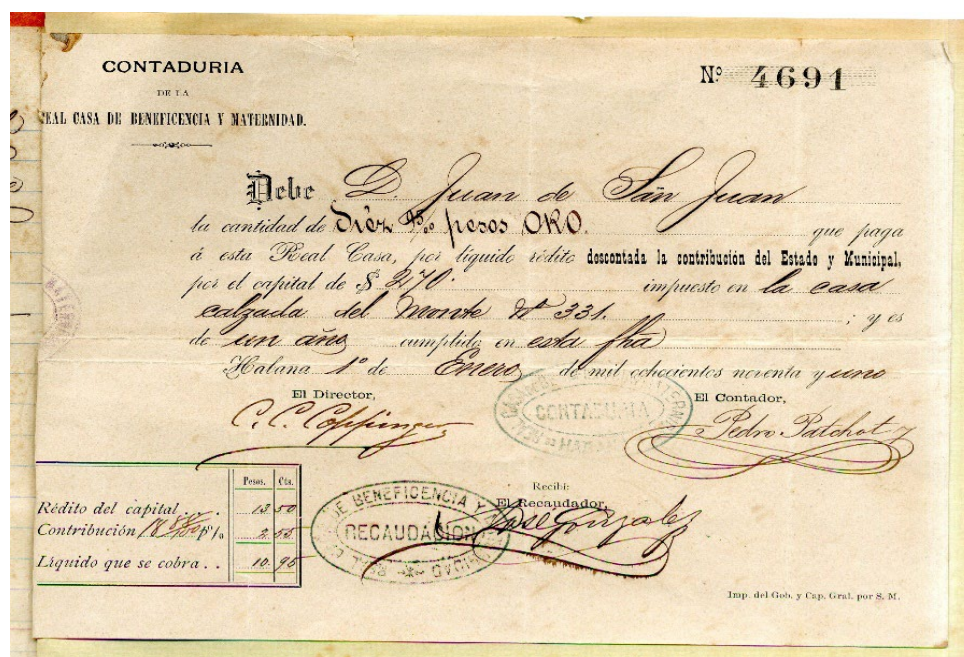 CONTADURIA
DE LA
REAL CASA DE BENEFICENCIA Y MATERNIDAD.
Nº 4691
Debe D. Juan de San Juan
la cantidad de Diéz 95/00 pesos ORO. que paga
á esta Real Casa, por líquido rédito descontada la contribución del Estado y Municipal,
por el capital de $ 270. impuesto en la casa
calzada del Monte Nº 331. ; y es
de un año cumplido en esta fha
Habana 1º de Enero de mil ochocientos noventa y uno
El Director,
El Contador,
C. C. Coppinger
CONTADURIA
Pedro Patchot
Pesos. Cts.
Recibi:
El Recaudador,
José González
Rédito del capital... 13 50
Contribución p% 2 55
Líquido que se cobra.. 10. 95
DE BENEFICENCIA Y
RECAUDACION
Imp. del Gob. y Cap. Gral. por S. M.